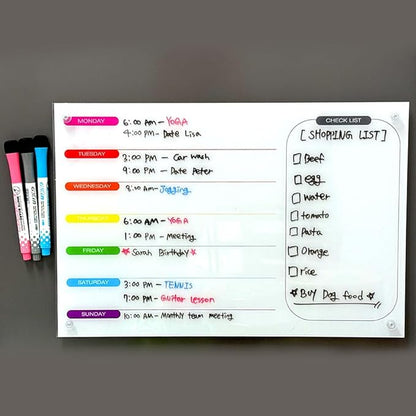 MONDAY
6:00 AM - YOGA
4:00 PM - Date Lisa
TUESDAY
3:00 PM - Car wash
9:00 PM - Date Peter
WEDNESDAY
AM - Jogging
THURSDAY
6:00 AM - YOGA
1:00 PM - Meeting
FRIDAY
Sarah Birthday
SATURDAY
3:00 PM - TENNIS
7:00 PM - Guitar Lesson
SUNDAY
10:00 AM - Monthly team meeting
CHECK LIST
[SHOPPING LIST]
Beef
egg
water
tomato
Pasta
Orange
rice
BUY Dog food